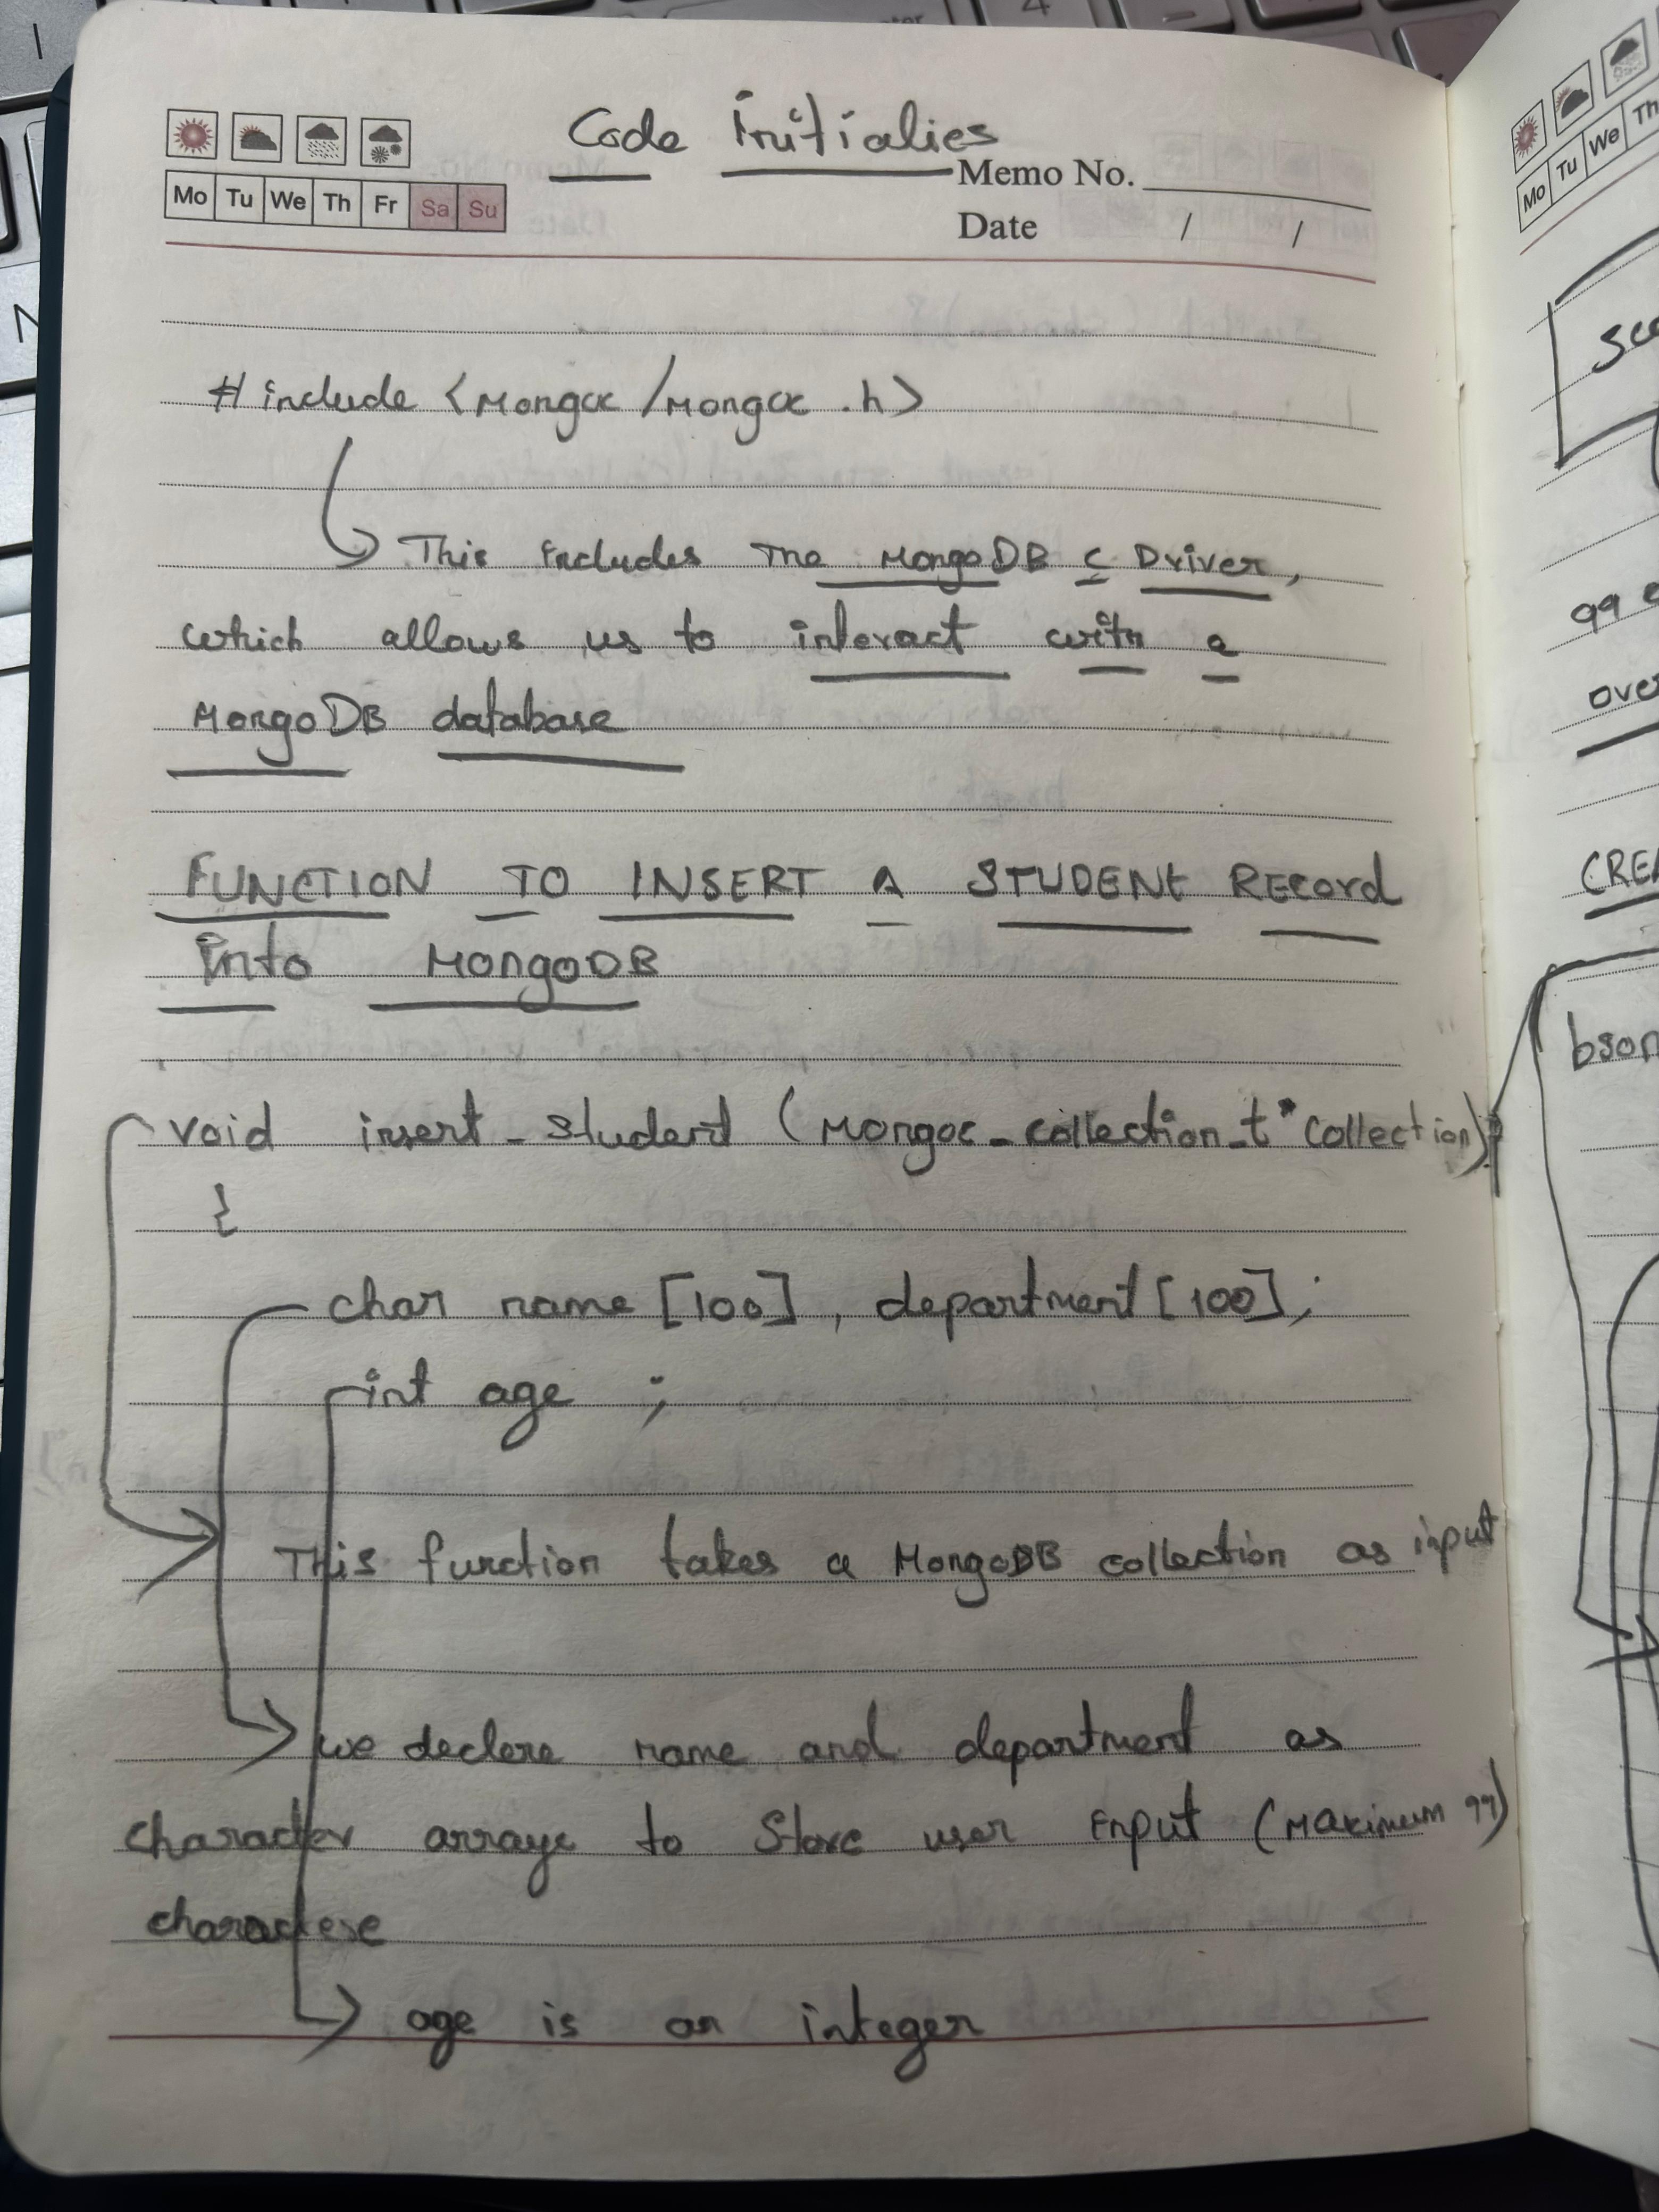 Code Initialies
Memo No.
Mo Tu We Th Fr Sa Su
Date / /
#include <Mongoc/Mongoc.h>
This includes The MongoDB C Driver,
which allows us to interact with a
MongoDB database
FUNCTION TO INSERT A STUDENT RECord
into MongoDB
void insert_student (Mongoc_collection_t* collection)
{
char name [100], department [100];
int age ;
This function takes a MongoDB collection as input
we declere name and department as
character arrays to Store user input (Maximum 99)
characters
age is an integer
Mo Tu We Th
99
CREA
bson